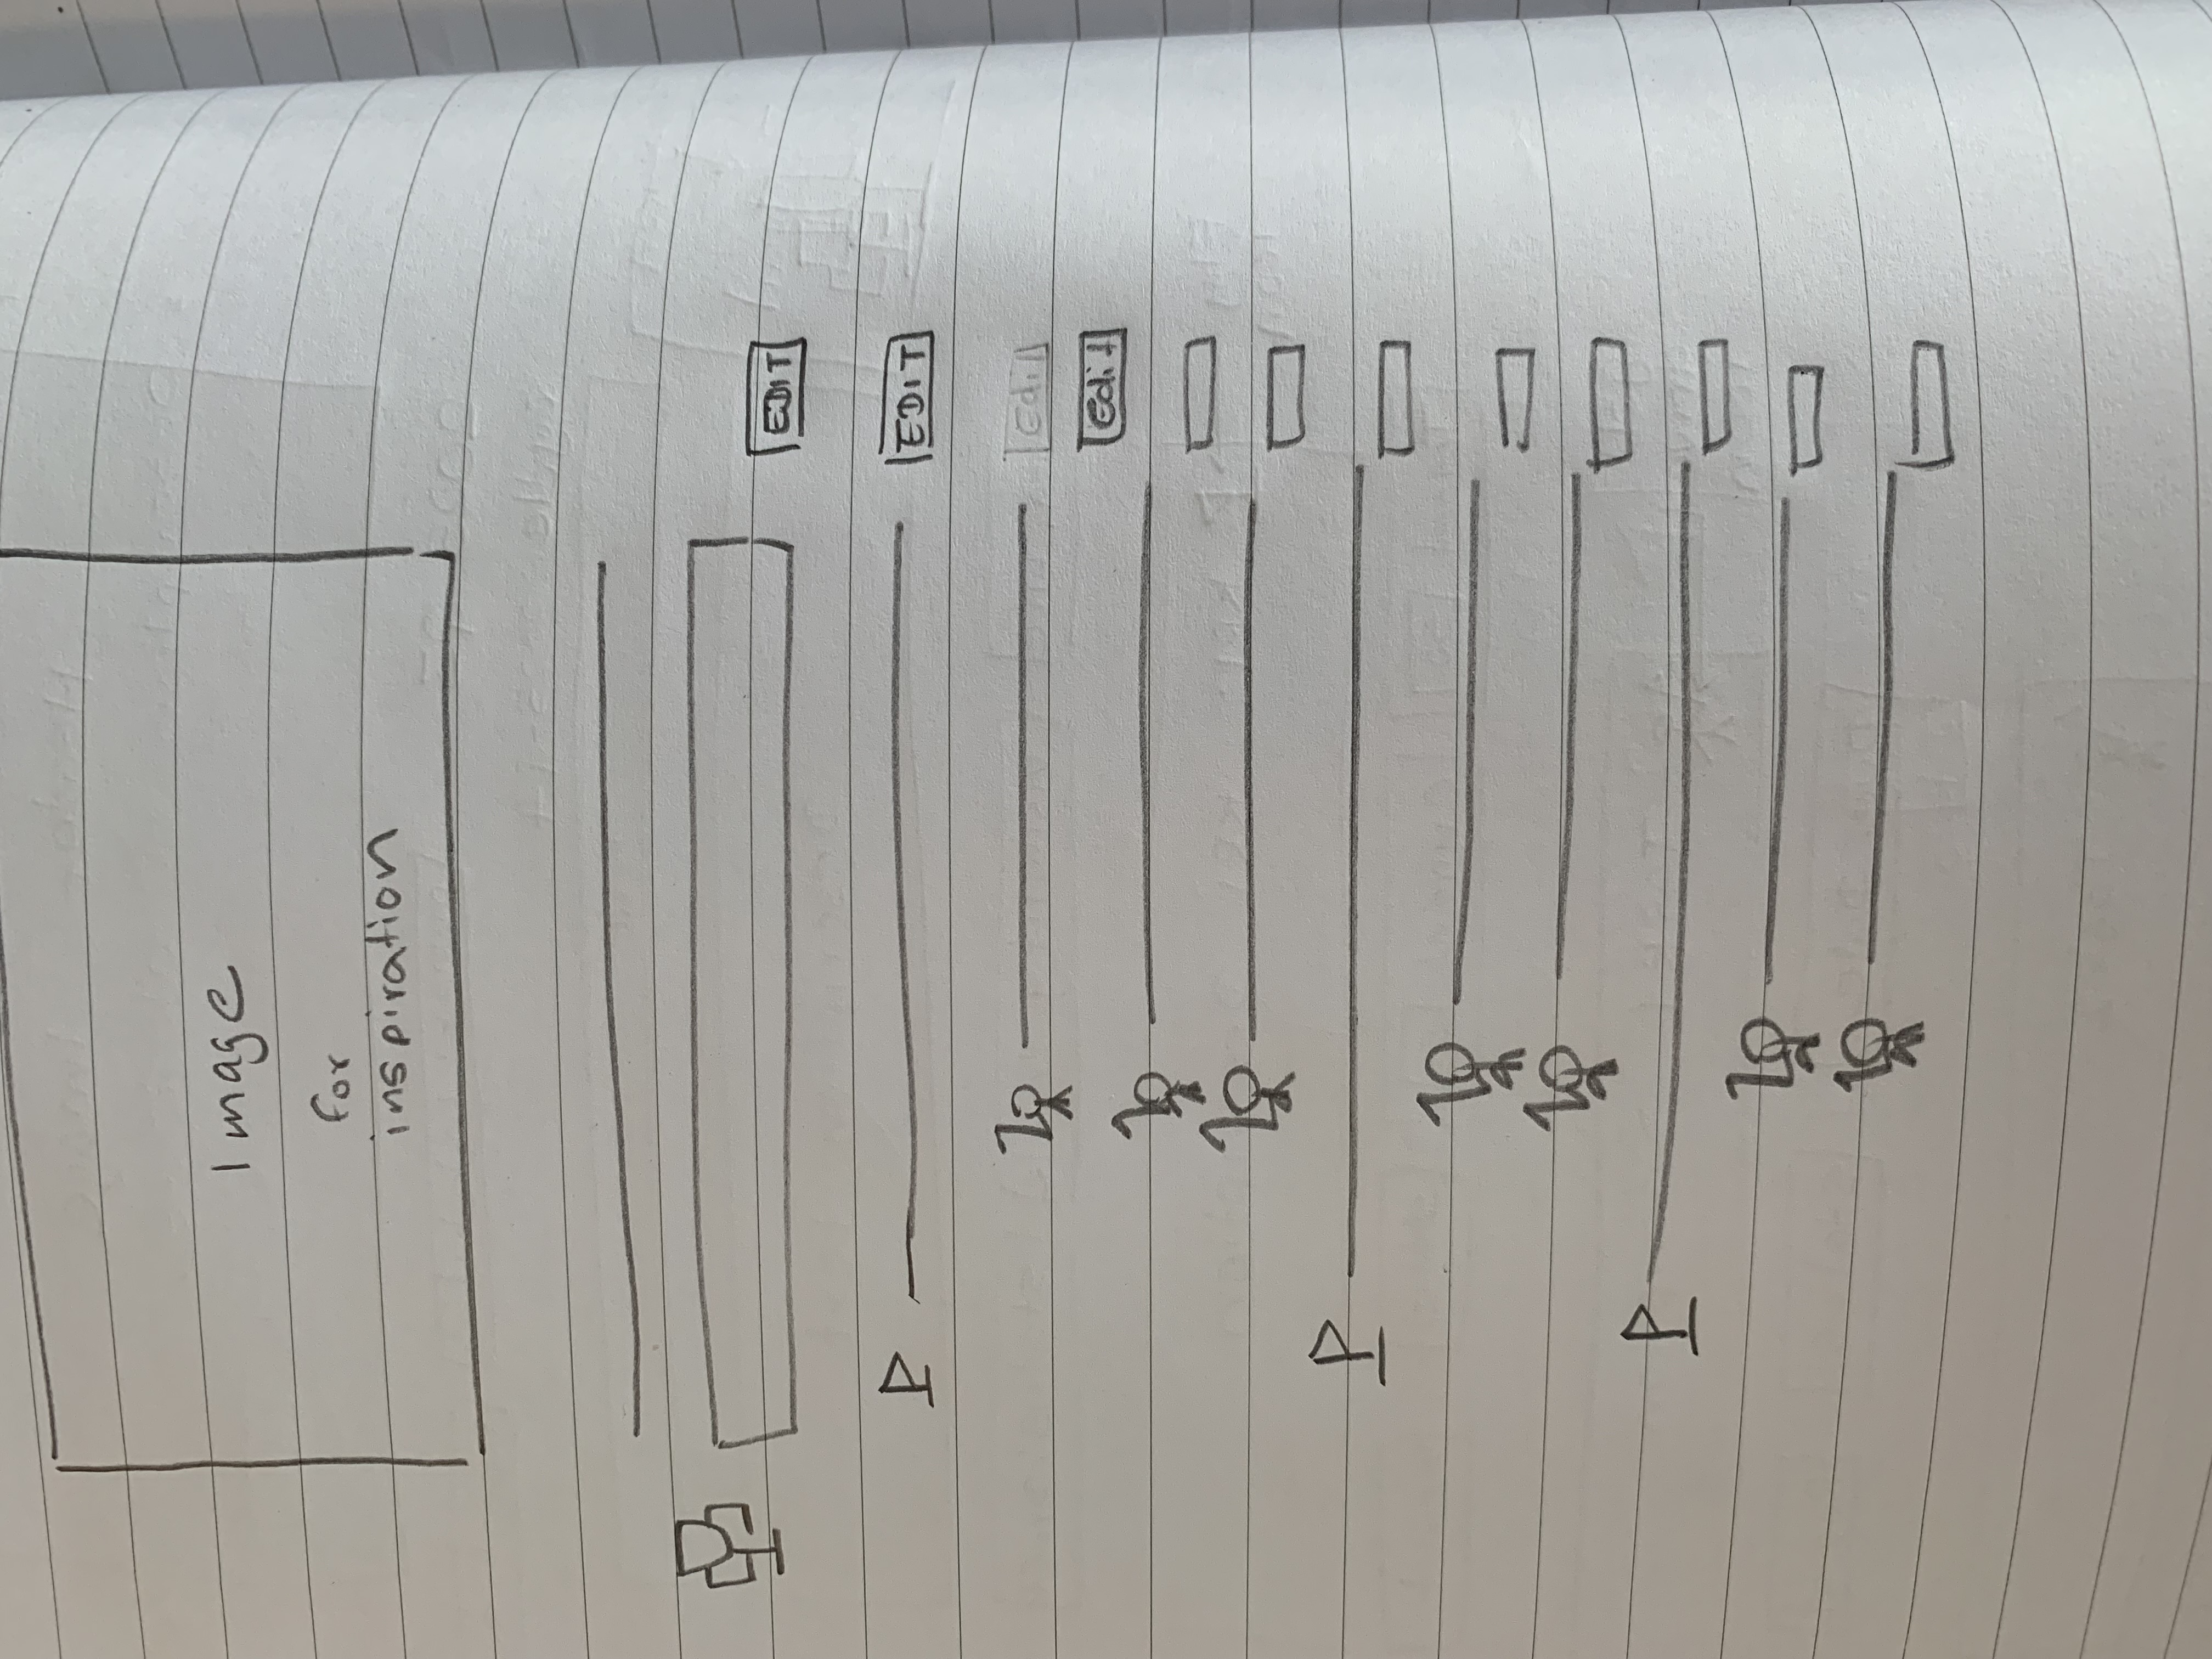 Image
for
inspiration
EDIT
EDIT
Edit
Edit